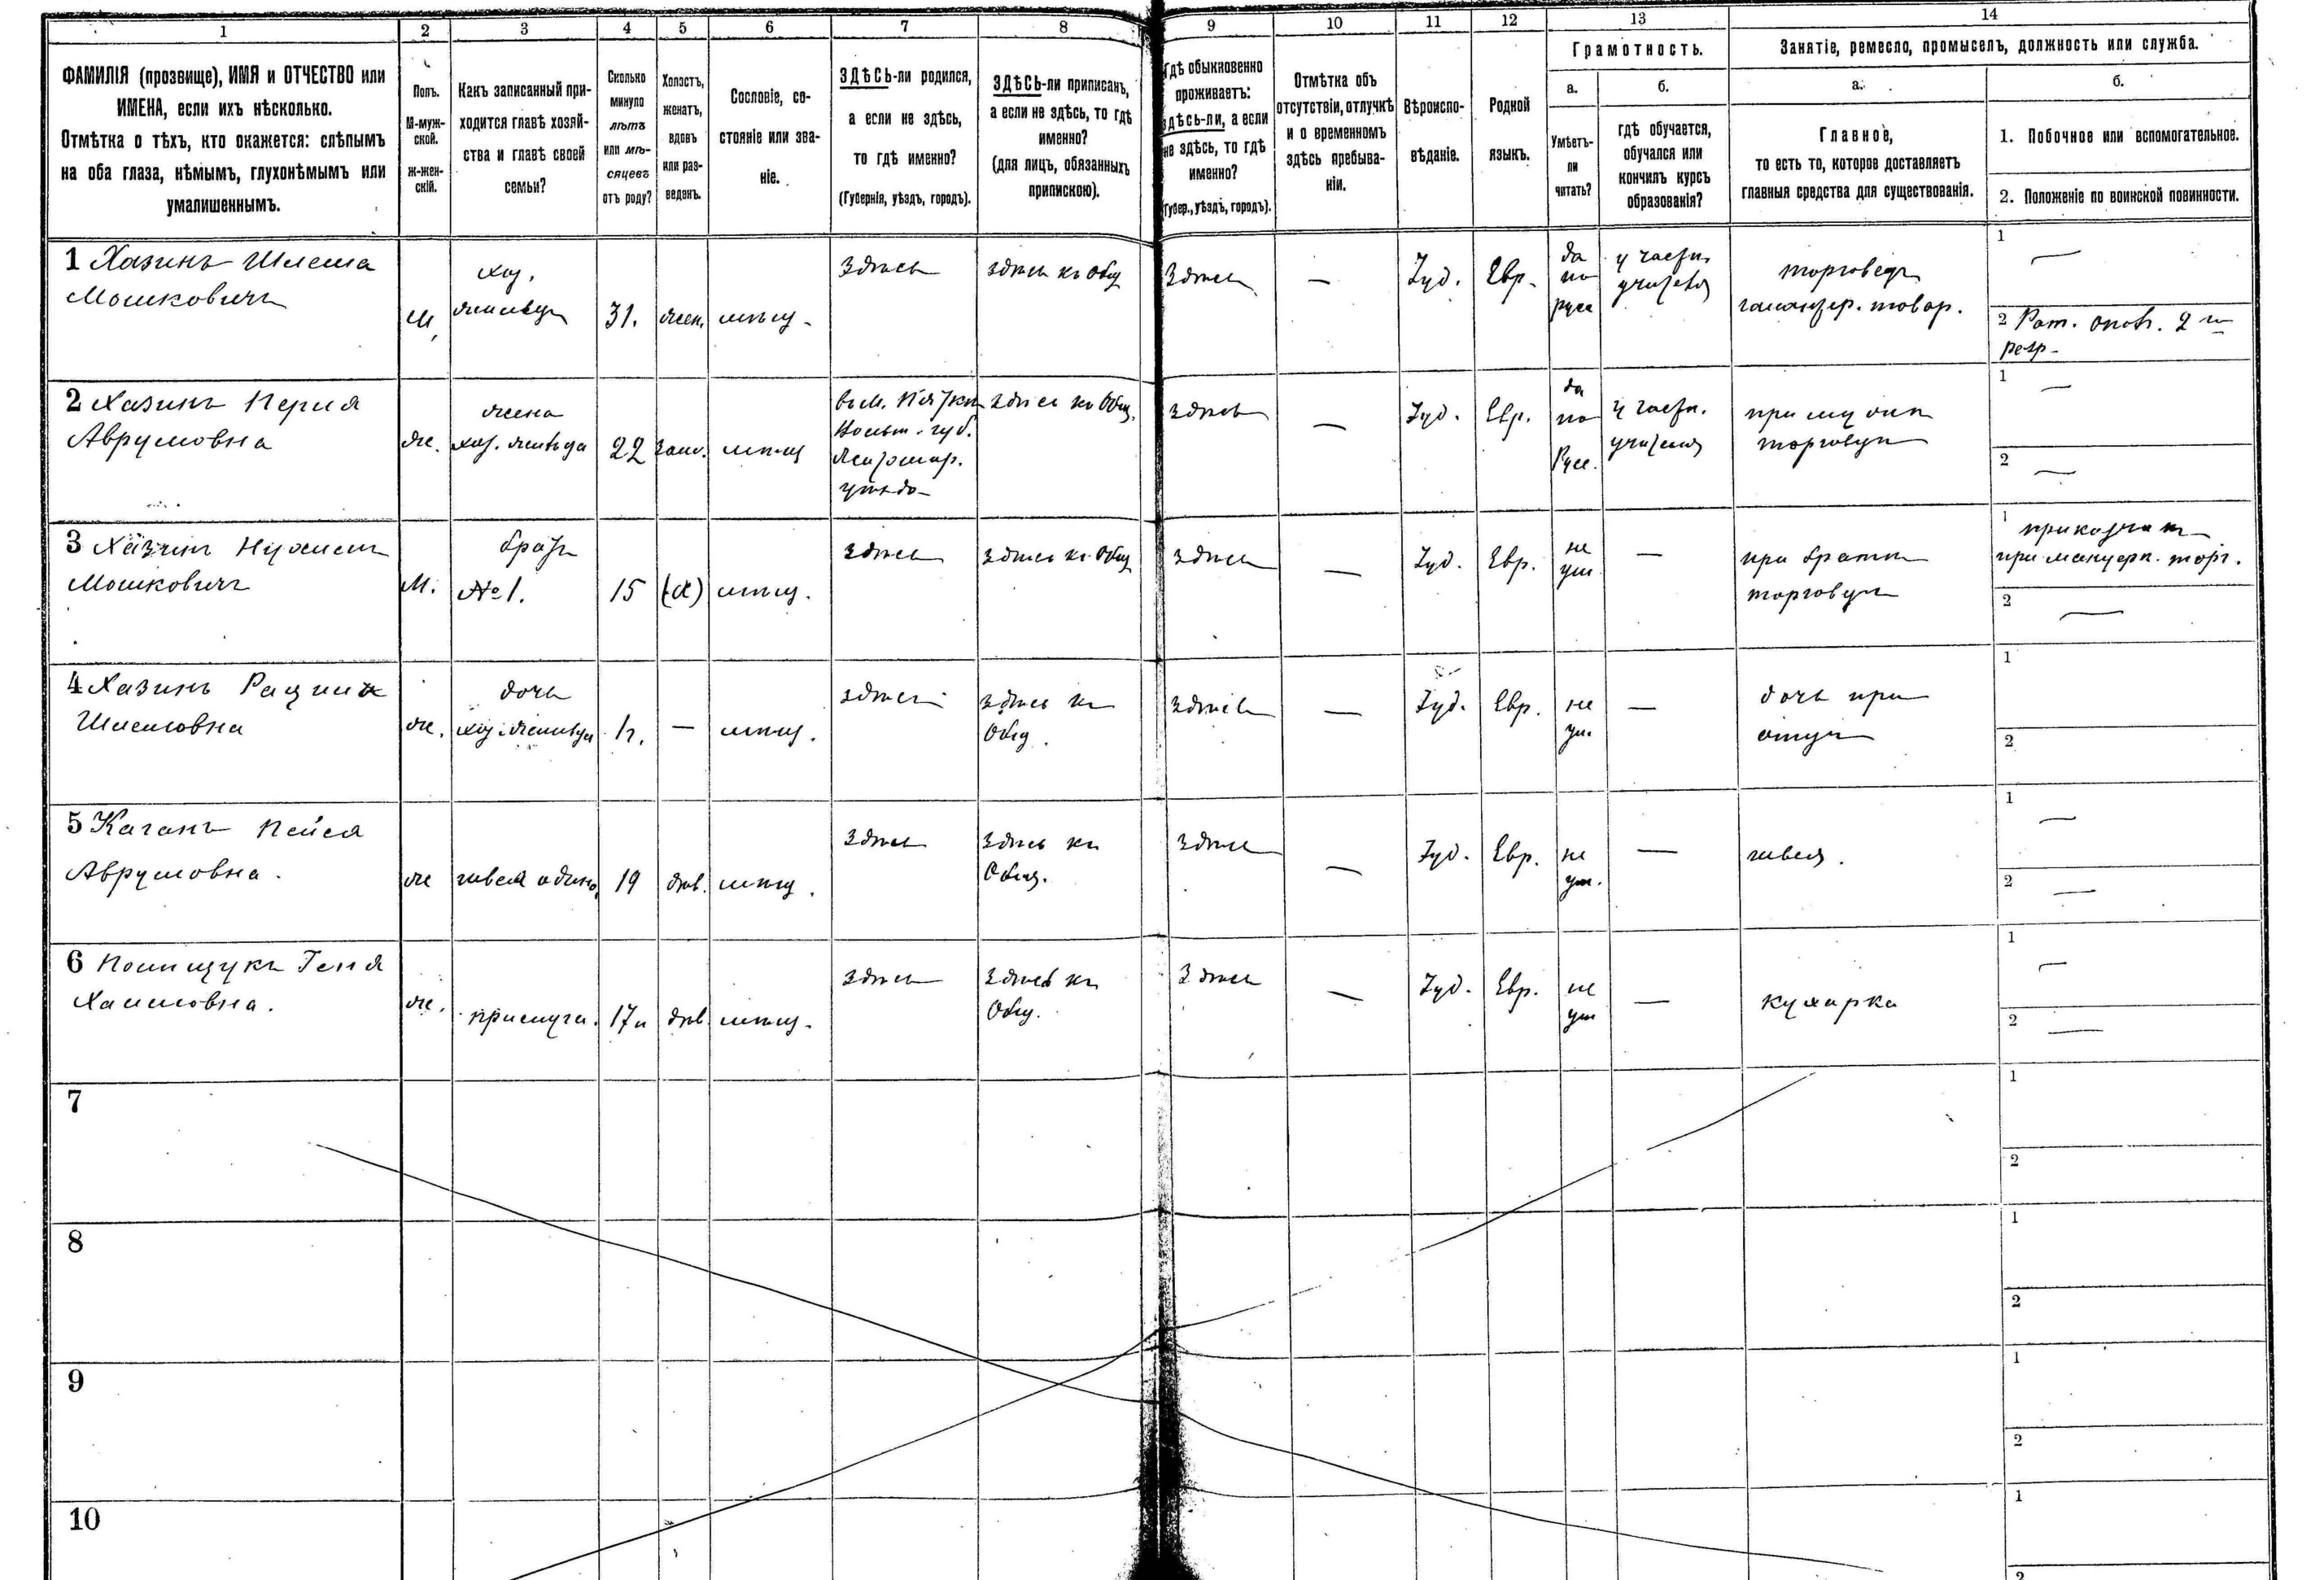 1
2
3
4
5
6
7
8
9
10
11
12
13
14
ФАМИЛІЯ (прозвище), ИМЯ и ОТЧЕСТВО или
ИМЕНА, если ихъ нѣсколько.
Отмѣтка о тѣхъ, кто окажется: слѣпымъ
на оба глаза, нѣмымъ, глухонѣмымъ или
умалишеннымъ.
Полъ.
М-муж-
ской.
Ж-жен-
скій.
Какъ записанный при-
ходится главѣ хозяй-
ства и главѣ своей
семьи?
Сколько
минуло
лѣтъ
или мѣ-
сяцевъ
отъ роду?
Холостъ,
женатъ,
вдовъ
или раз-
веденъ.
Сословіе, со-
стояніе или зва-
ніе.
ЗДѢСЬ-ли родился,
а если не здѣсь,
то гдѣ именно?
(Губернія, уѣздъ, городъ).
ЗДѢСЬ-ли приписанъ,
а если не здѣсь, то гдѣ
именно?
(для лицъ, обязанныхъ
припискою).
Гдѣ обыкновенно
проживаетъ:
здѣсь-ли, а если
не здѣсь, то гдѣ
именно?
(Губер., уѣздъ, городъ).
Отмѣтка объ
отсутствіи, отлучкѣ
и о временномъ
здѣсь пребыва-
ніи.
Вѣроиспо-
вѣданіе.
Родной
языкъ.
Грамотность.
а.
Умѣетъ-
ли
читать?
б.
гдѣ обучается,
обучался или
кончилъ курсъ
образованія?
Занятіе, ремесло, промыселъ, должность или служба.
а.
Главное,
то есть то, которое доставляетъ
главныя средства для существованія.
б.
1. Побочное или вспомогательное.
2. Положеніе по воинской повинности.
1 Хазинъ Шлема
Мошковичъ
М
хоз.
31.
жен.
мѣщ.
Здѣсь
здѣсь къ общ
Здѣсь
—
Іуд.
Евр.
да
по
русс
у частн.
учителя
торговецъ
галантер. товар.
1 —
2 Рат. опол. 2
разр.
2 Хазинъ Перля
Аврумовна
ж.
жена
хоз.
22
зам.
мѣщ
Волын. губ.
Житомир.
уѣзда
здѣсь къ Общ.
здѣсь
—
Іуд.
Евр.
да
по
Русс.
у частн.
учителя
при мужѣ
торговцѣ
1 —
2 —
3 Хазинъ
Мошковичъ
М.
братъ
№ 1.
15
(х)
мѣщ.
здѣсь
здѣсь къ Общ
здѣсь
—
Іуд.
Евр.
не
ум
—
при братѣ
торговцѣ
1 прикащикъ
2 —
4 Хазинъ
Шлемовна
ж.
дочь
—
мѣщ.
здѣсь
здѣсь къ
Общ.
здѣсь
—
Іуд.
Евр.
не
ум.
—
дочь при
отцѣ
1
2
5 Каганъ Пейся
Аврумовна.
ж
швея одино.
19
дѣв.
мѣщ.
здѣсь
здѣсь къ
Общ.
здѣсь
—
Іуд.
Евр.
не
ум.
—
швея.
1 —
2 —
6 Полищукъ Геня
Хаимовна.
ж.
прислуга.
17
дѣв
мѣщ.
здѣсь
здѣсь къ
Общ.
Здѣсь
—
Іуд.
Евр.
не
ум
—
кухарка
1 —
2 —
7
1
2
8
1
2
9
1
2
10
1
2